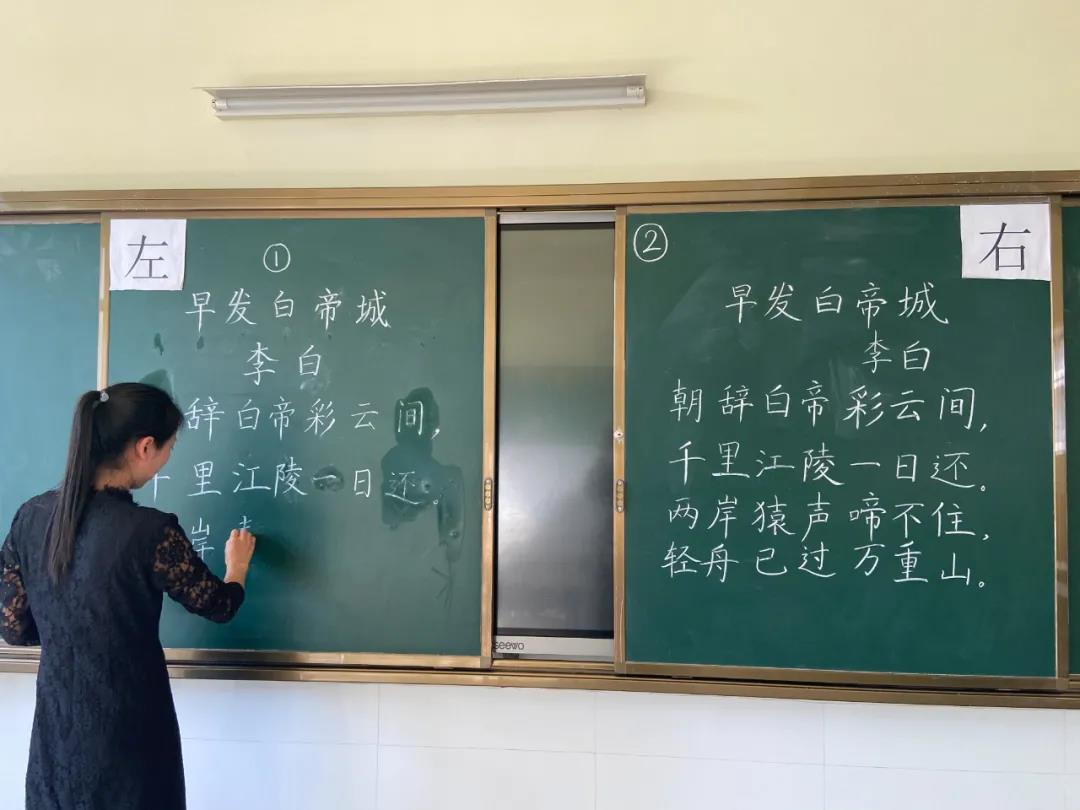 左
①
早发白帝城
李白
辞白帝彩云间，
千里江陵一日还。
岸
②
右
早发白帝城
李白
朝辞白帝彩云间，
千里江陵一日还。
两岸猿声啼不住，
轻舟已过万重山。
seewo